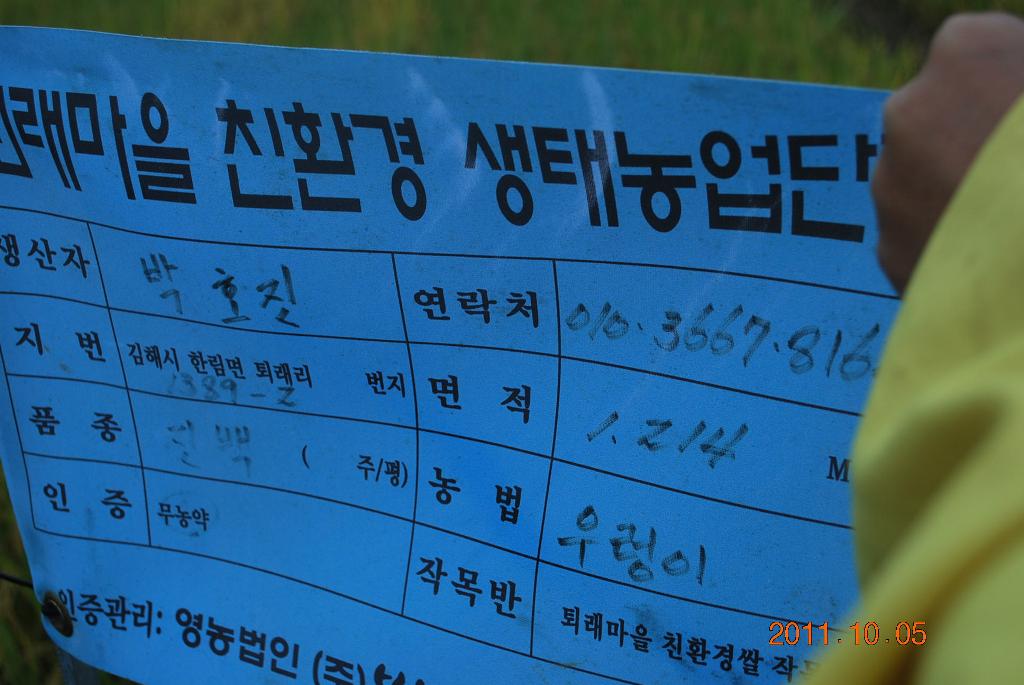 퇴래마을 친환경 생태농업단
생산자 박호진 연락처 010.3667.816
지 번 김해시 한림면 퇴래리 1389-2 번지 면 적 1.214 M
품 종 ( 주/평) 농 법 우렁이
인 증 무농약 작목반 퇴래마을 친환경쌀 작
인증관리: 영농법인 (주)
2011.10.05